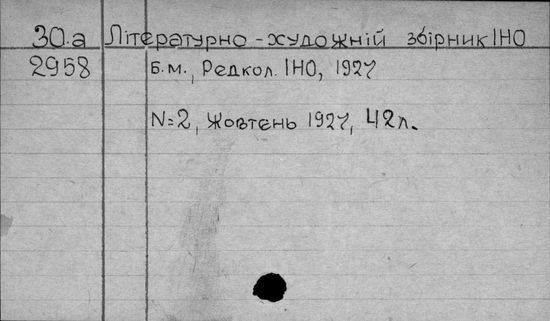 30.а Літературно-художній збірник ІНО
2958 Б.м., Редкол. ІНО, 1927
N=2, Жовтень 1927, 42л.